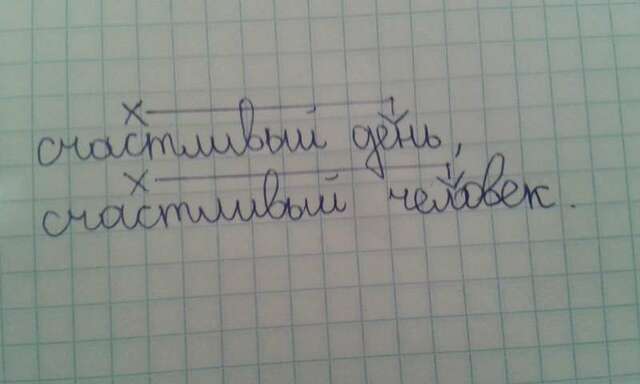 счастливый день,
счастливый человек.